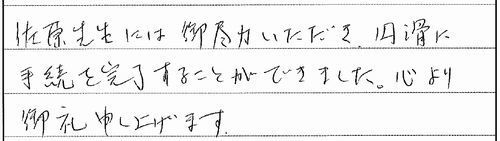 佐原先生には御尽力いただき、円滑に
手続を完了することができました。心より
御礼申し上げます。